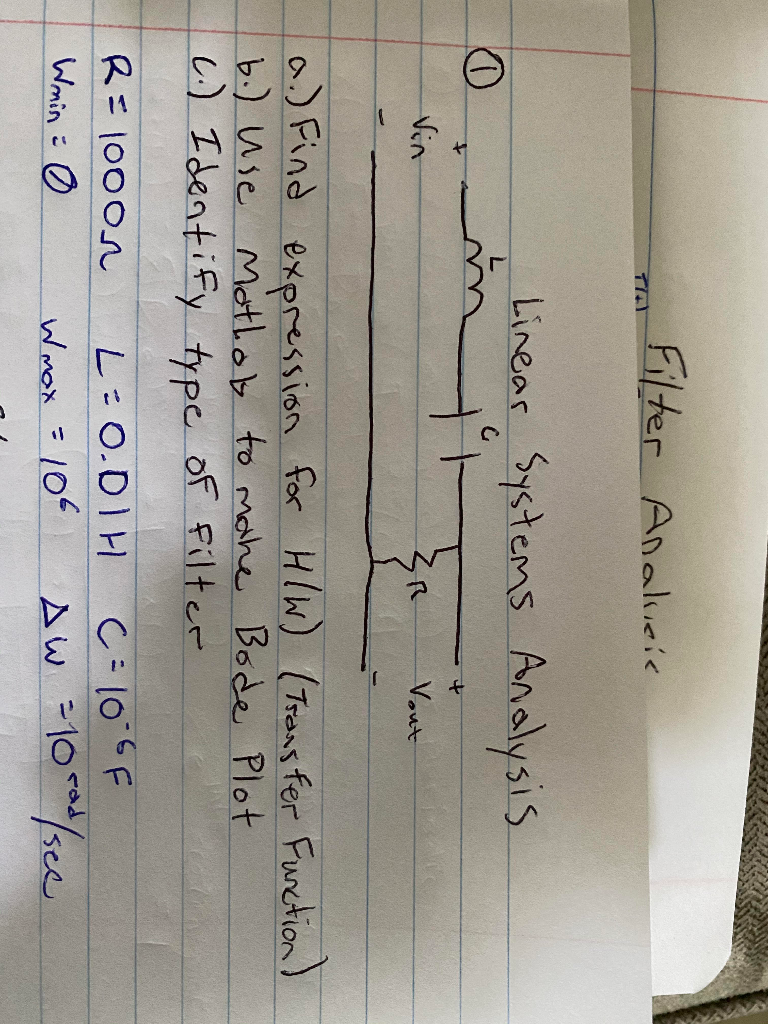 Filter Analysis
Linear Systems Analysis
①
+ L C +
Vin R Vout
- -
a.) Find expression for H(W) (Transfer Function)
b.) Use Matlab to make Bode Plot
c.) Identify type of filter
R = 1000Ω L = 0.01H C = 10⁻⁶F
Wmin = 0 Wmax = 10⁶ ΔW = 10 rad/sec